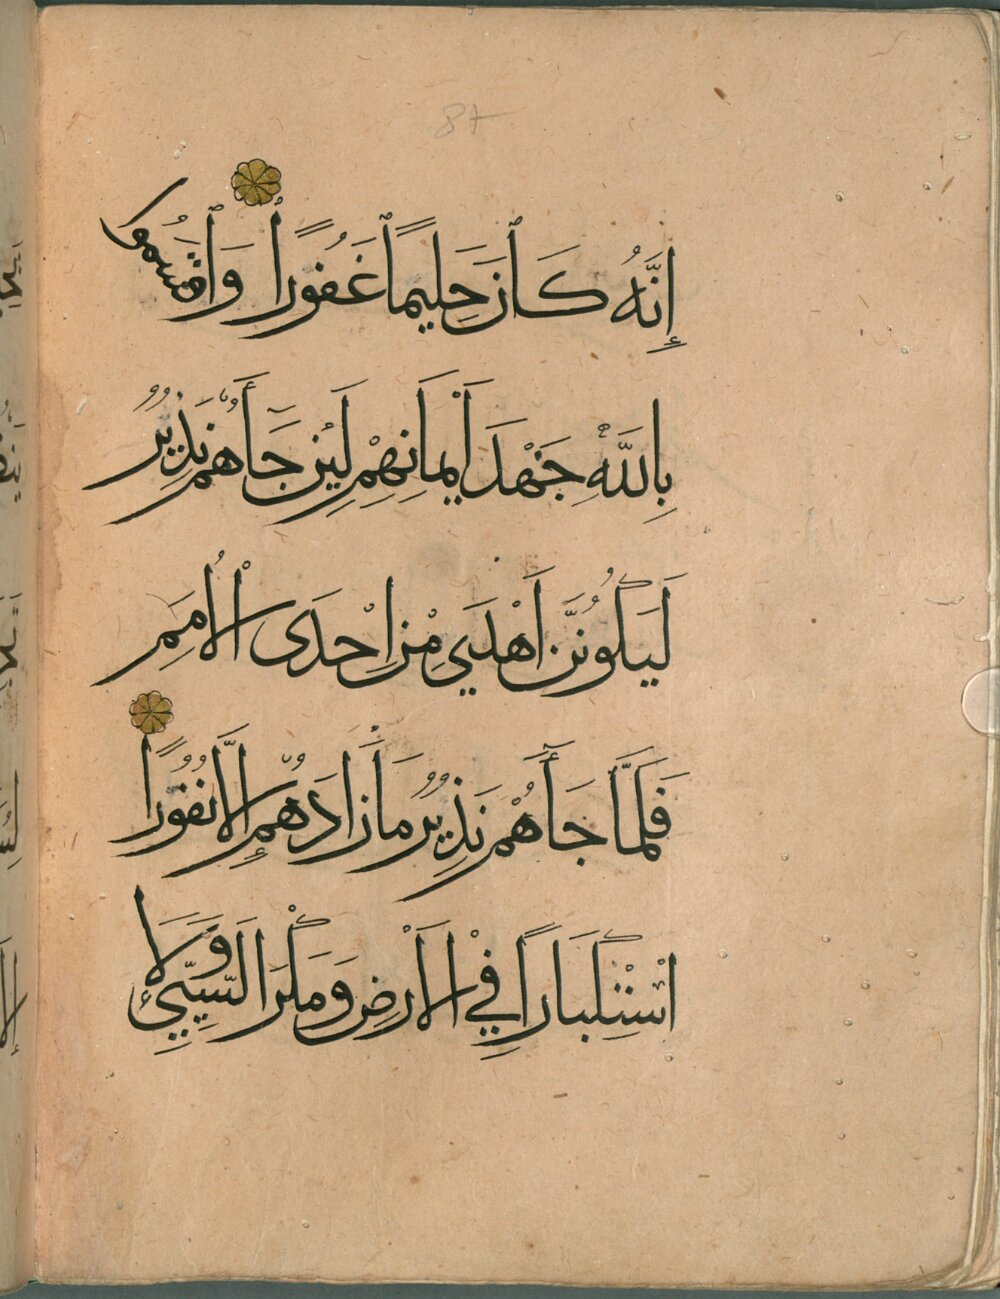 87
إِنَّهُ كَانَ حَلِيمًا غَفُورًا وَأَقْسَمُوا
بِاللَّهِ جَهْدَ أَيْمَانِهِمْ لَئِنْ جَأَهُمْ نَذِيرٌ
لَيَكُونُنَّ أَهْدَىٰ مِنْ إِحْدَى الْأُمَمِ
فَلَمَّا جَأَهُمْ نَذِيرٌ مَا زَادَهُمْ إِلَّا نُفُورًا
اسْتِكْبَارًا فِي الْأَرْضِ وَمَكْرَ السَّيِّئِ وَلَا